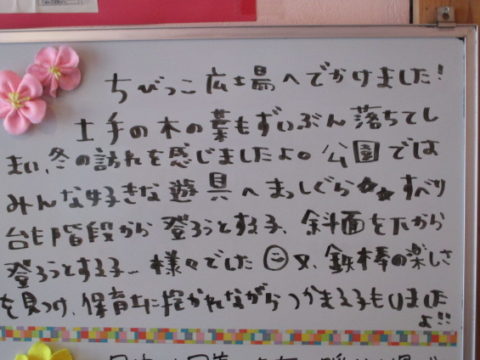 ちびっこ広場へでかけました!
土手の木の葉もずいぶん落ちてし
まい、冬の訪れを感じましたよ。公園では
みんな好きな遊具へまっしぐら☆☆すべり
台も階段から登ろうとする子、斜面を下から
登ろうとする子…様々でした☺又、鉄棒の楽しさ
を見つけ、保育士に抱かれながらつかまる子もいました
よ!!